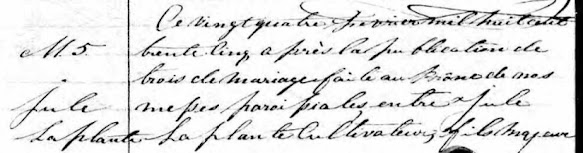 Ce vingt quatre février mil huit cent
M. 5 trente cinq après la publication de
trois de mariage faite au Prône de nos
Jule messes paroissiales entre Jule
Laplante Laplante Cultivateur, fils majeur